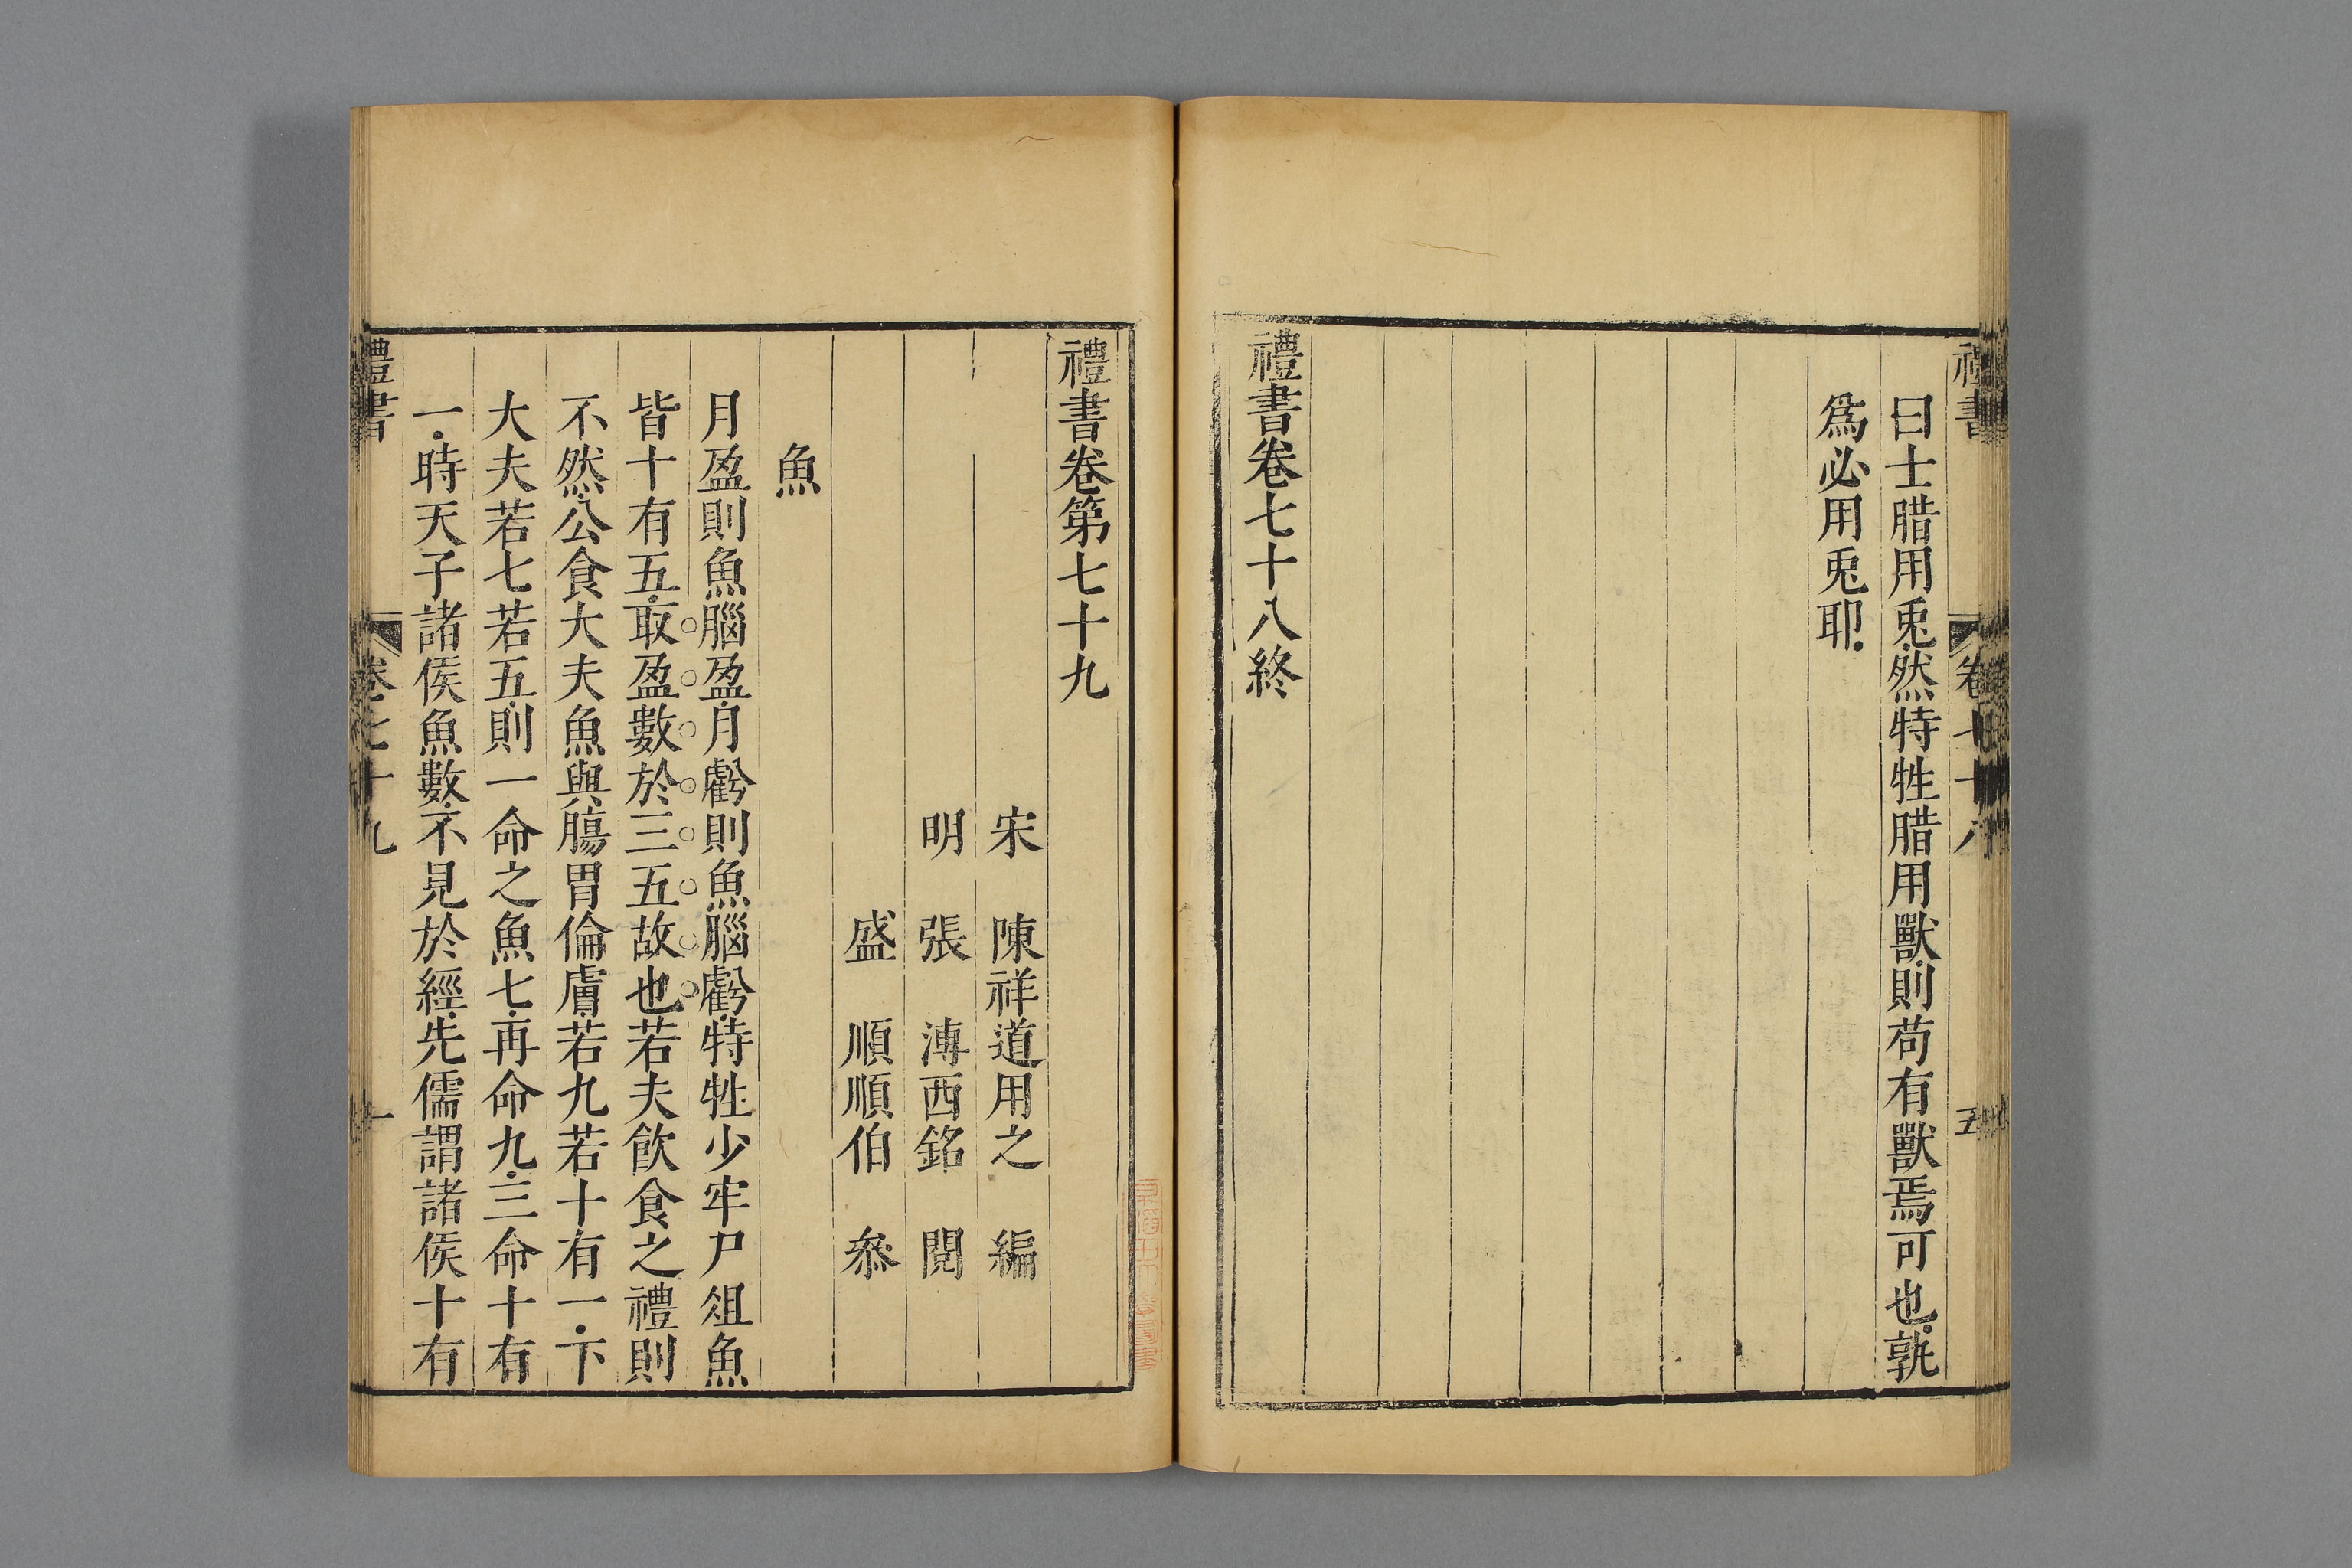 禮書 卷七十八 五
曰士腊用兎然特牲腊用獸則苟有獸焉可也孰
爲必用兎耶
禮書卷七十八終
禮書卷第七十九
宋 陳祥道用之 編
明 張 溥西銘 閱
盛 順順伯 叅
魚
月盈則魚腦盈月虧則魚腦虧特牲少牢尸俎魚
皆十有五取盈數於三五故也若夫飮食之禮則
不然公食大夫魚與膓胃倫膚若九若十有一下
大夫若七若五則一命之魚七再命九三命十有
一時天子諸侯魚數不見於經先儒謂諸侯十有
禮書 卷七十九 一